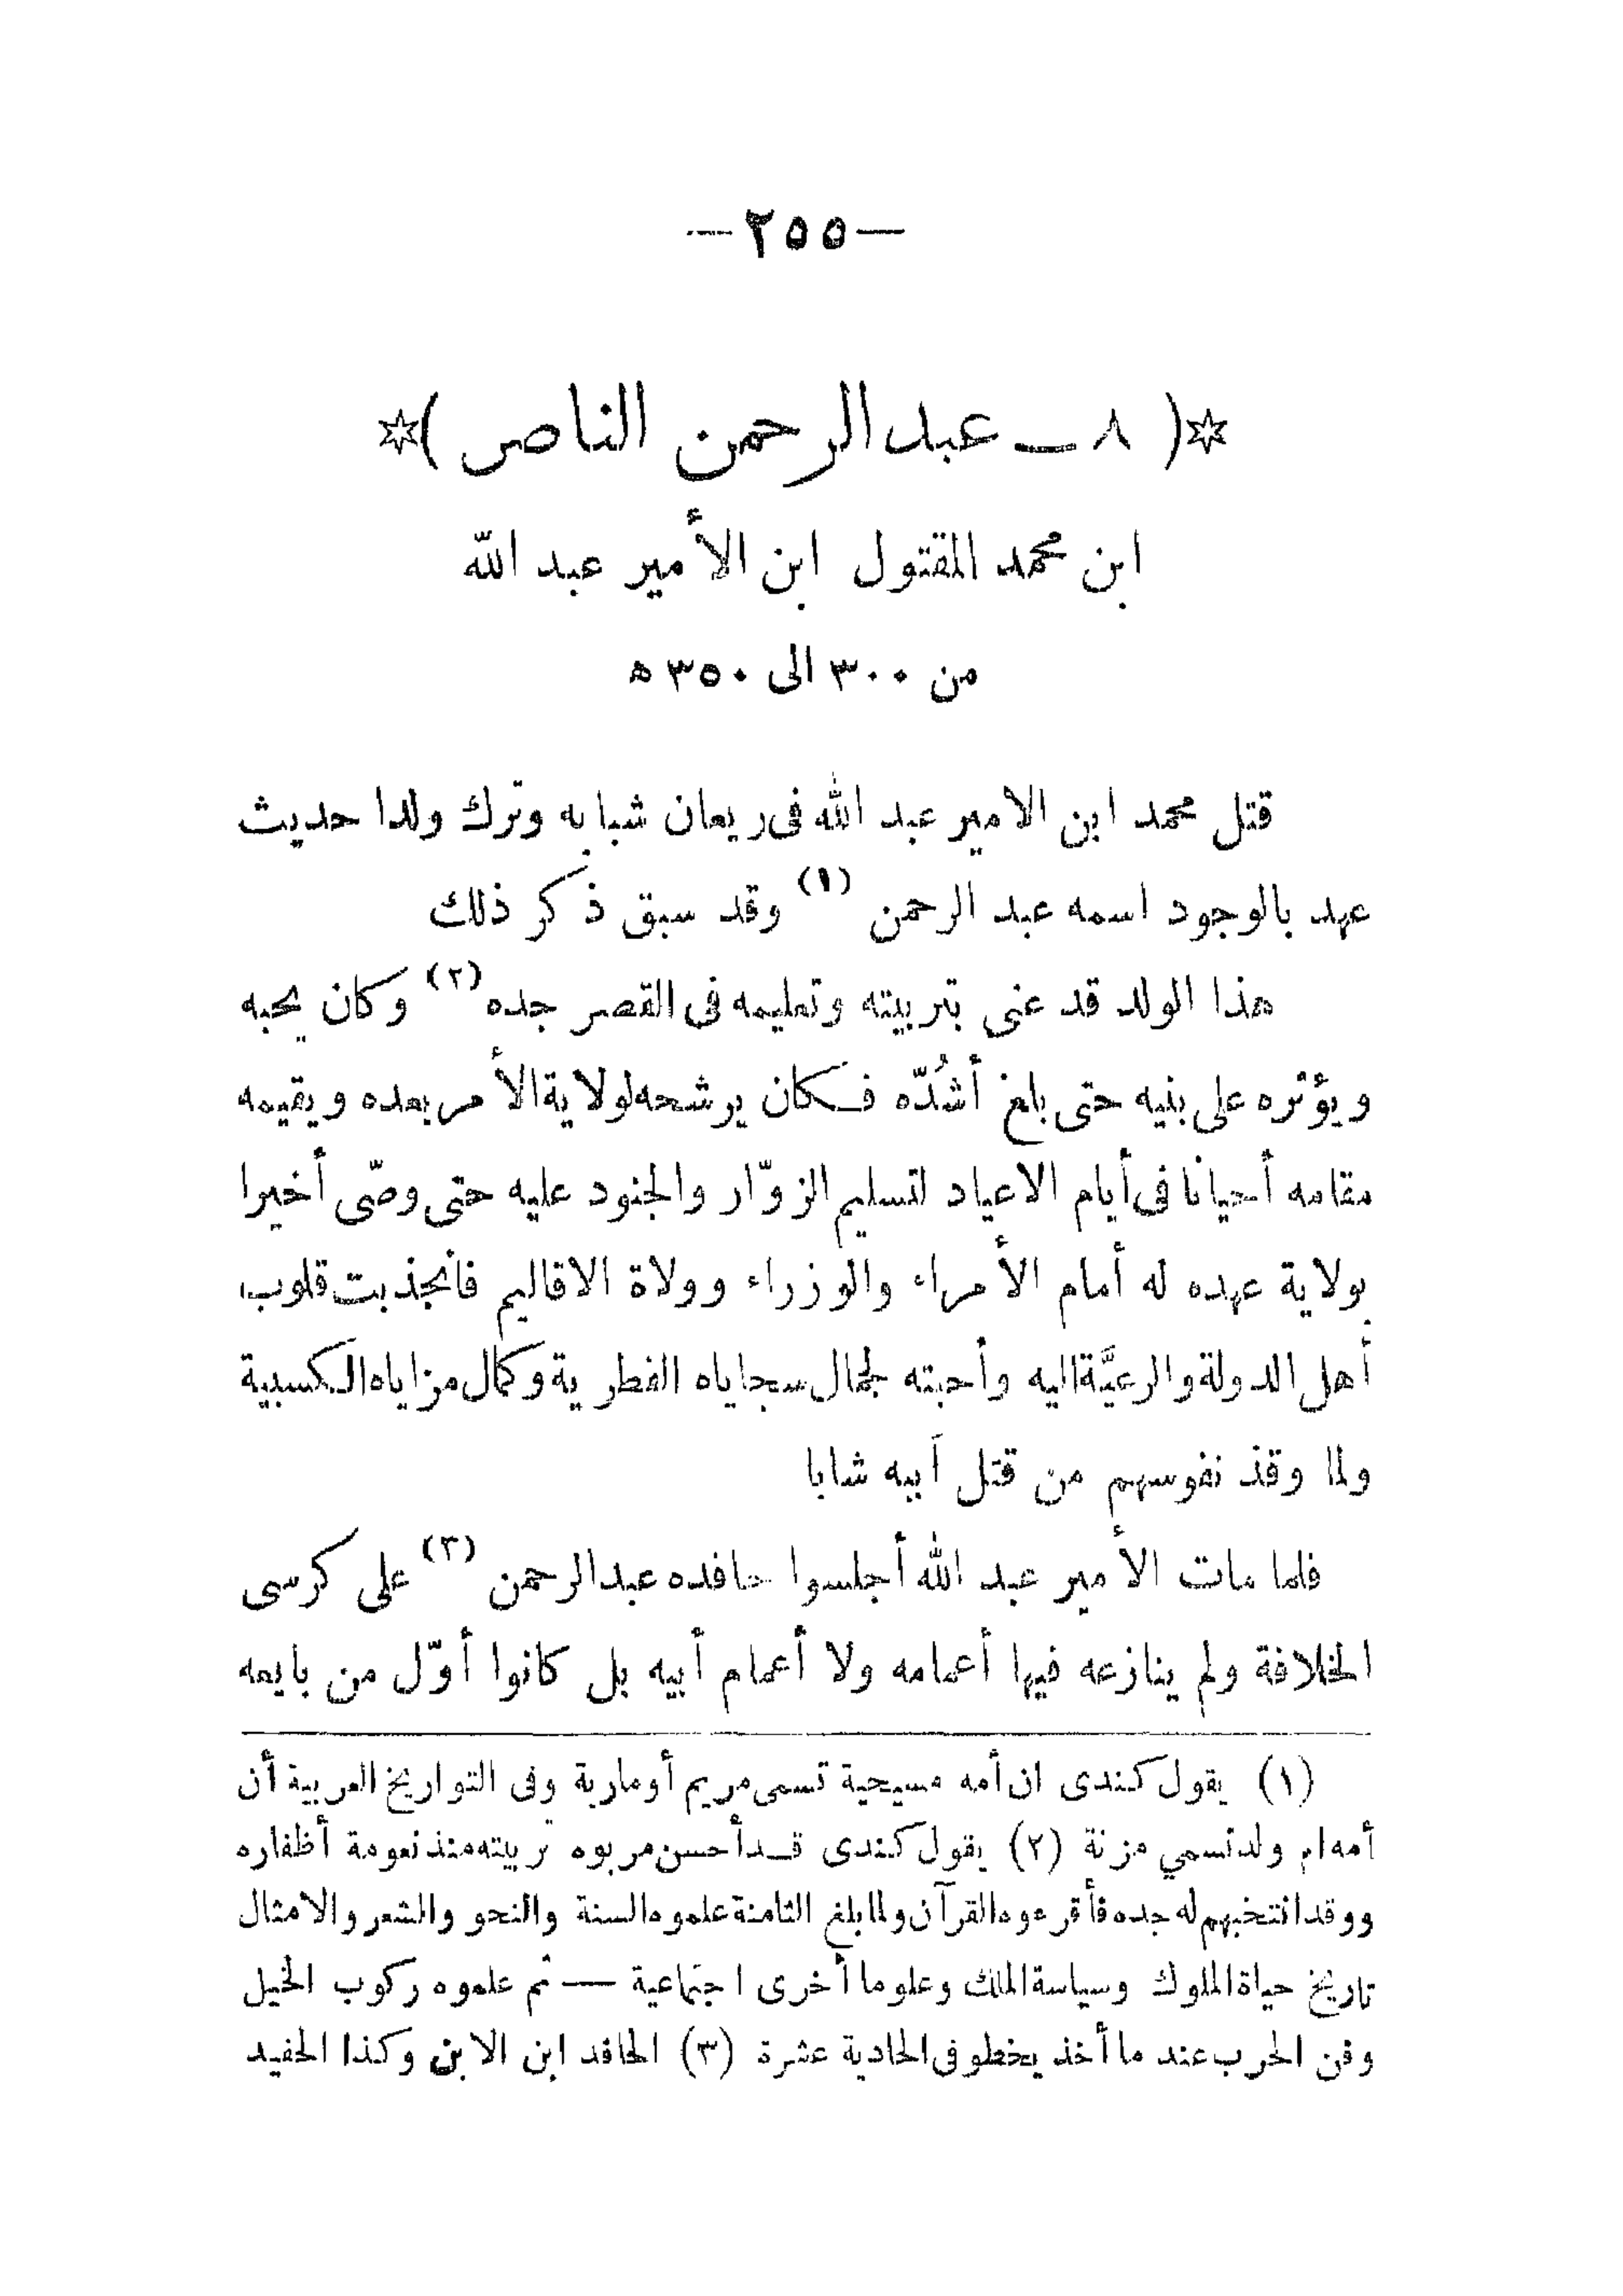 —٢٥٥—
*( ٨ — عبد الرحمن الناصر )*
ابن محمد المقتول ابن الأمير عبد الله
من ٣٠٠ الى ٣٥٠ هـ
قتل محمد ابن الامير عبد الله فى ريعان شبابه وترك ولدا حديث
عهد بالوجود اسمه عبد الرحمن (١) وقد سبق ذكر ذلك
هذا الولد قد عنى بتربيته وتعليمه فى القصر جده (٢) وكان يحبه
ويؤثره على بنيه حتى بلغ أشُدّه فكان يرشحه لولاية الأمر بعده ويقيمه
مقامه أحيانا فى أيام الاعياد لتسليم الزوّار والجنود عليه حتى وصّى أخيرا
بولاية عهده له أمام الأمراء والوزراء وولاة الاقاليم فانجذبت قلوب
أهل الدولة والرعيَّة اليه وأحبته لجمال سجاياه الفطرية وكمال مزاياه الكسبية
ولما وقذ نفوسهم من قتل أبيه شابا
فلما مات الأمير عبد الله أجلسوا حافده عبد الرحمن (٣) على كرسى
الخلافة ولم ينازعه فيها أعمامه ولا أعمام أبيه بل كانوا أوّل من بايعه
(١) يقول كندى ان أمه مسيحية تسمى مريم أو مارية وفى التواريخ العربية أن
أمه ام ولد تسمي مزنة (٢) يقول كندى قد أحسن مربوه تربيته منذ نعومة أظفاره
ووقد انتخبهم له جده فأقرءوه القرآن ولما بلغ الثامنة علموه السنة والنحو والشعر والامثال
تاريخ حياة الملوك وسياسة الملك وعلوما أخرى اجتماعية — ثم علموه ركوب الخيل
وفن الحرب عند ما أخذ يخطو فى الحادية عشرة (٣) الحافد ابن الابن وكذا الحفيد